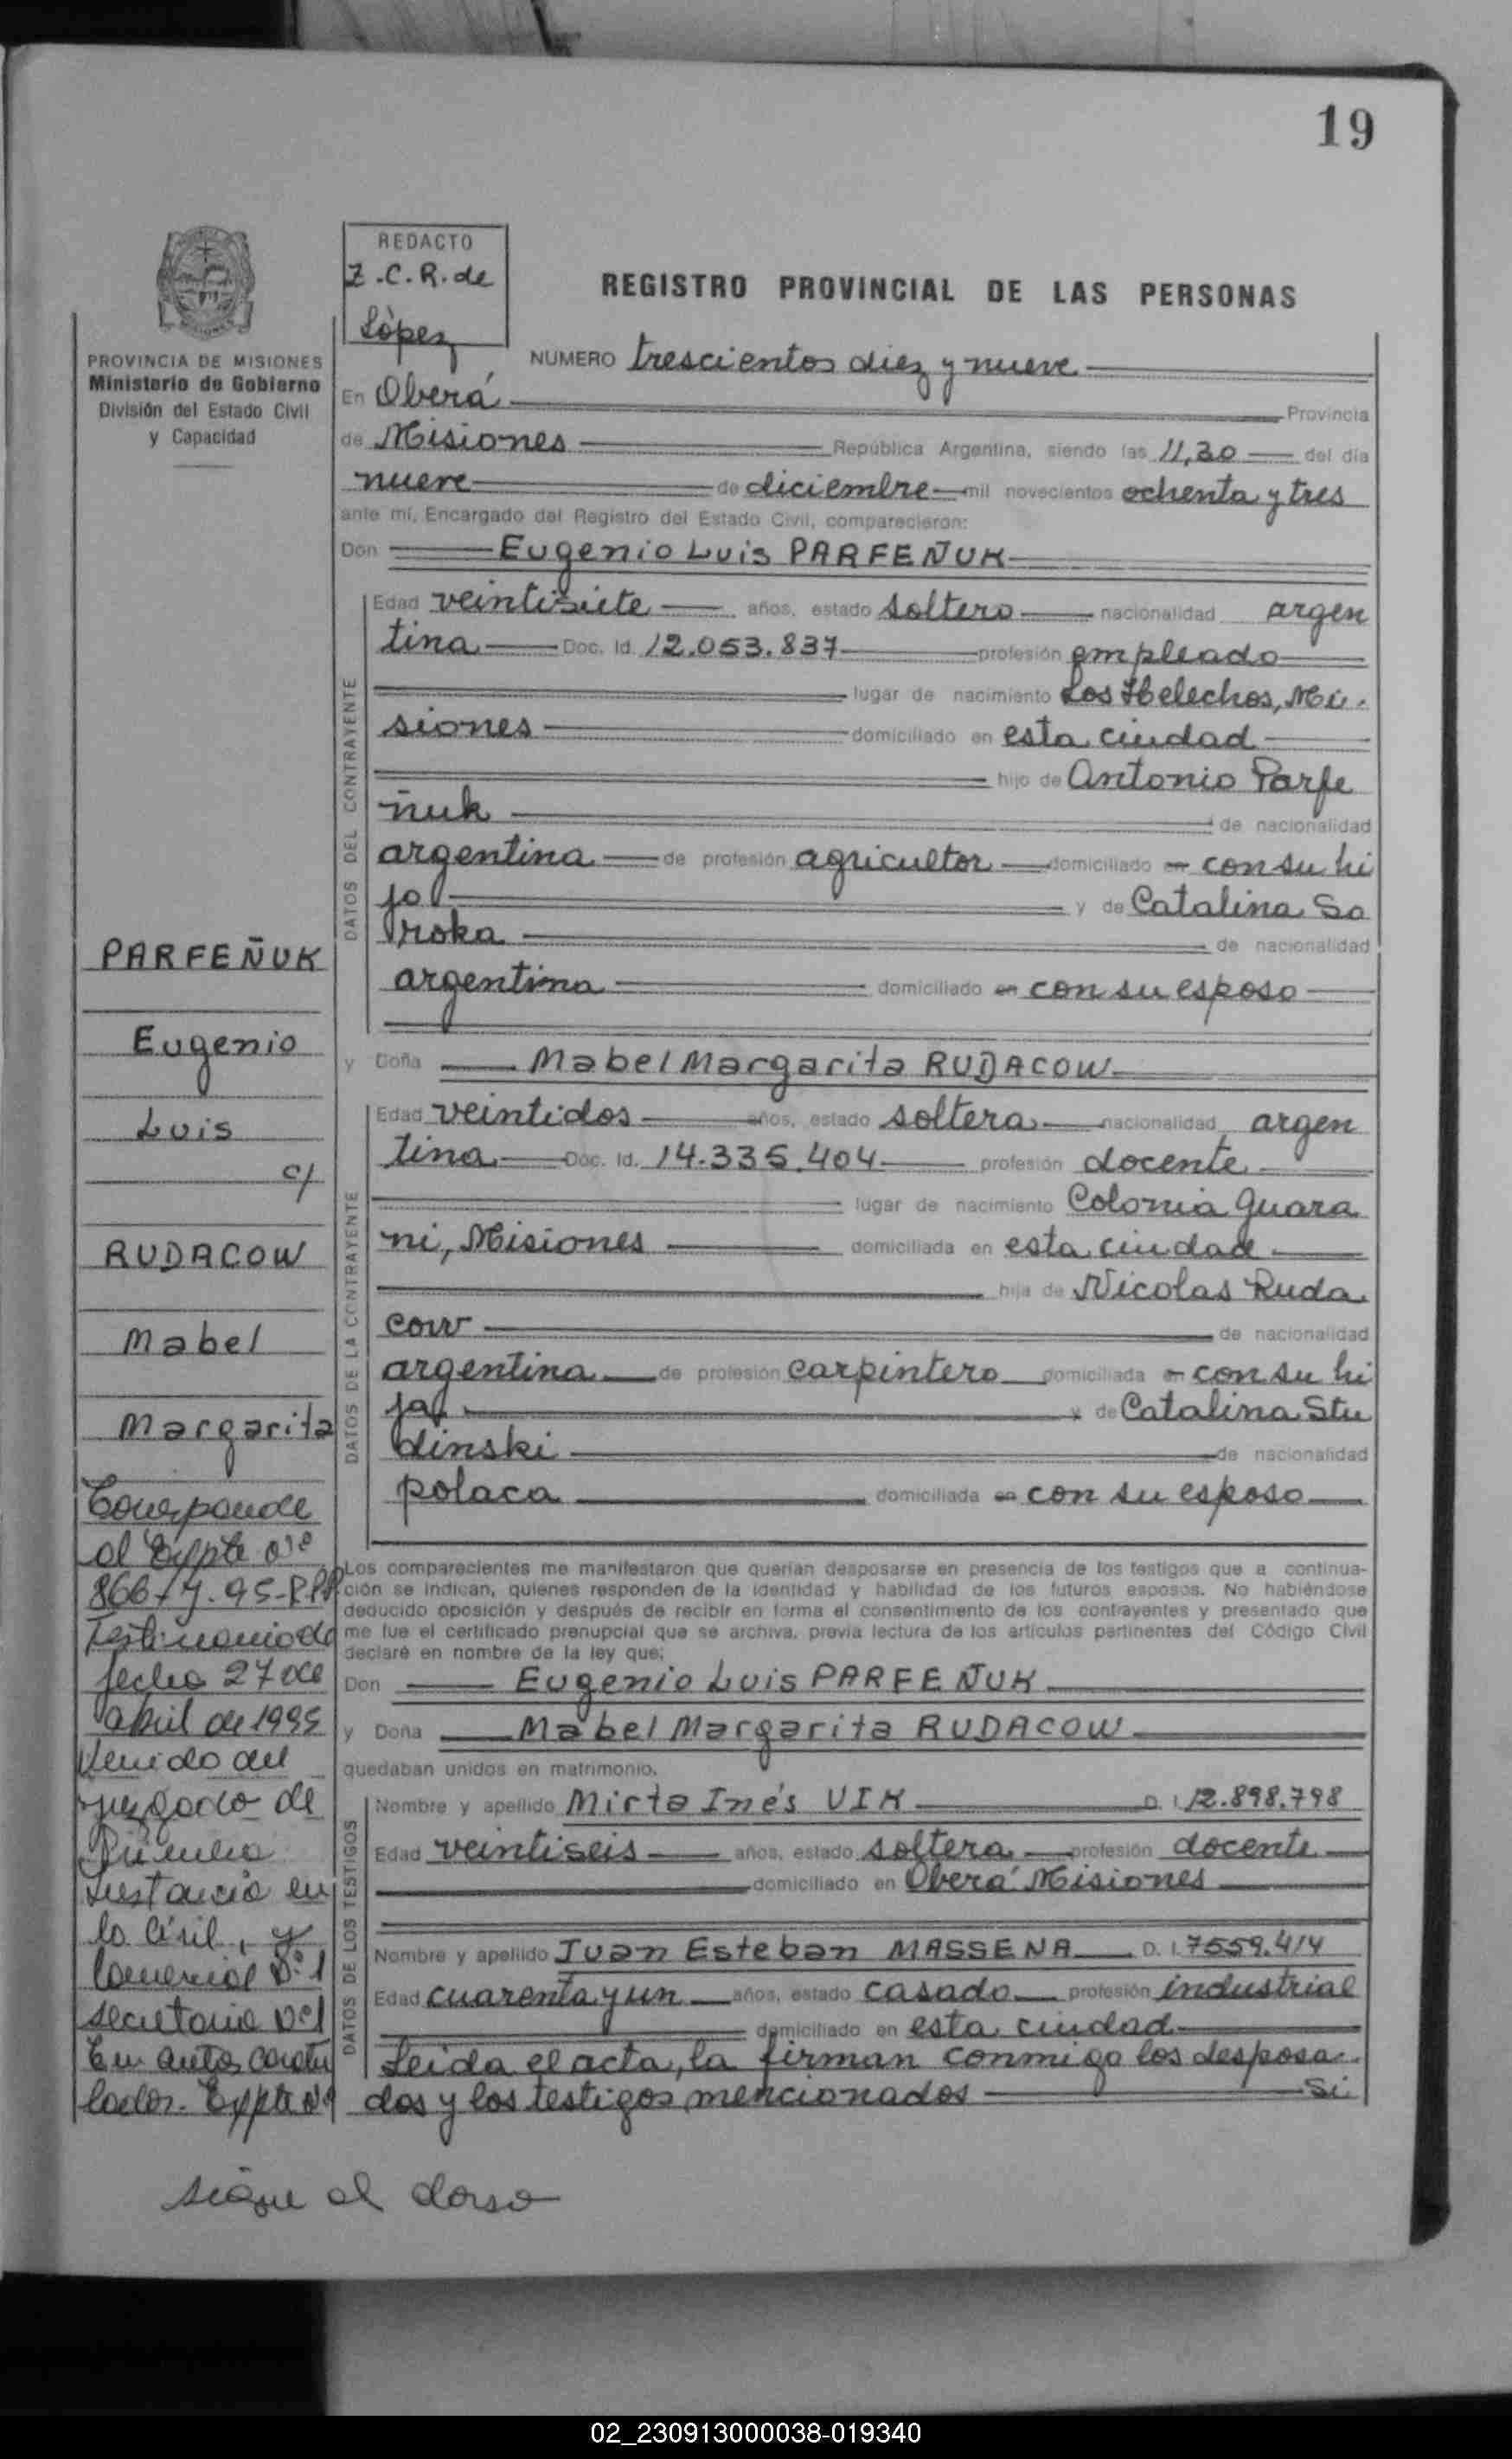 19
REDACTO
Z.C.R. de
López
REGISTRO PROVINCIAL DE LAS PERSONAS
PROVINCIA DE MISIONES
Ministerio de Gobierno
División del Estado Civil
y Capacidad
NUMERO trescientos diez y nueve
En Oberá Provincia
de Misiones República Argentina, siendo las 11,30 del día
nueve de diciembre mil novecientos ochenta y tres
ante mí, Encargado del Registro del Estado Civil, comparecieron:
Don Eugenio Luis PARFEÑUK
DATOS DEL CONTRAYENTE
Edad veintisiete años, estado soltero nacionalidad argen
tina Doc. Id. 12.053.837 profesión empleado
lugar de nacimiento Los Helechos, Mi-
siones domiciliado en esta ciudad
hijo de Antonio Parfe
ñuk de nacionalidad
argentina de profesión agricultor domiciliado con su hi
jo y de Catalina So
roka de nacionalidad
argentina domiciliado en con su esposo
y Doña Mabel Margarita RUDACOW
DATOS DE LA CONTRAYENTE
Edad veintidos años, estado soltera nacionalidad argen
tina Doc. Id. 14.335.404 profesión docente
lugar de nacimiento Colonia Guara
ni, Misiones domiciliada en esta ciudad
hija de Nicolas Ruda
cow de nacionalidad
argentina de profesión carpintero domiciliada con su hi
ja y de Catalina Stu
dinski de nacionalidad
polaca domiciliada en con su esposo
Los comparecientes me manifestaron que querían desposarse en presencia de los testigos que a continua-
ción se indican, quienes responden de la identidad y habilidad de los futuros esposos. No habiéndose
deducido oposición y después de recibir en forma el consentimiento de los contrayentes y presentado que
me fue el certificado prenupcial que se archiva, previa lectura de los artículos pertinentes del Código Civil
declaré en nombre de la ley que:
Don Eugenio Luis PARFEÑUK
y Doña Mabel Margarita RUDACOW
quedaban unidos en matrimonio.
DATOS DE LOS TESTIGOS
Nombre y apellido Mirta Inés VIK D. I. 12.898.798
Edad veintiseis años, estado soltera profesión docente
domiciliado en Oberá Misiones
Nombre y apellido Juan Esteban MASSENA D. I. 7559.414
Edad cuarenta y un años, estado casado profesión industrial
domiciliado en esta ciudad
Leida el acta, la firman conmigo los desposa-
dos y los testigos mencionados Si
PARFEÑUK
Eugenio
Luis
c/
RUDACOW
Mabel
Margarita
Corresponde
al Expte nº
866-
Testimonio de
fecha 27 de
abril de 1995
venido del
juzgado de
Primera
Instancia en
lo Civil, y
Comercial Nº 1
secretaria Nº 1
En autos caratu
lados. Expte nº
sigue al dorso
02_230913000038-019340